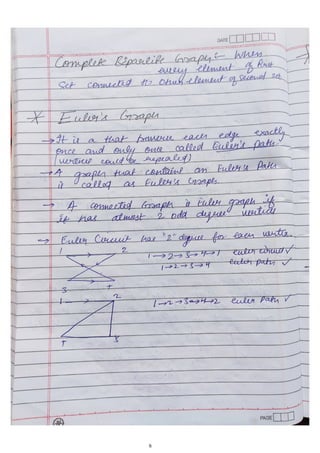 DATE
Complete Bipartite Graph:- When
every element of first
Set connected to other element of second set
* Euler's Graph
→ It is a that traverse each edge exactly
once and only once called Euler's Path.
(vertices could be repeated)
→ A graph that contains an Euler's Path
is called as Euler's Graph
→ A connected Graph is Euler graph if
it has atmost 2 odd degree vertices
→ Euler Circuit has "2" degree for each vertice.
1 2
1→2→3→4→1 euler circuit ✓
1→2→3→4 euler path ✓
3 4
1 2
1→2→3→4→2 euler path ✓
4 3
PAGE
6